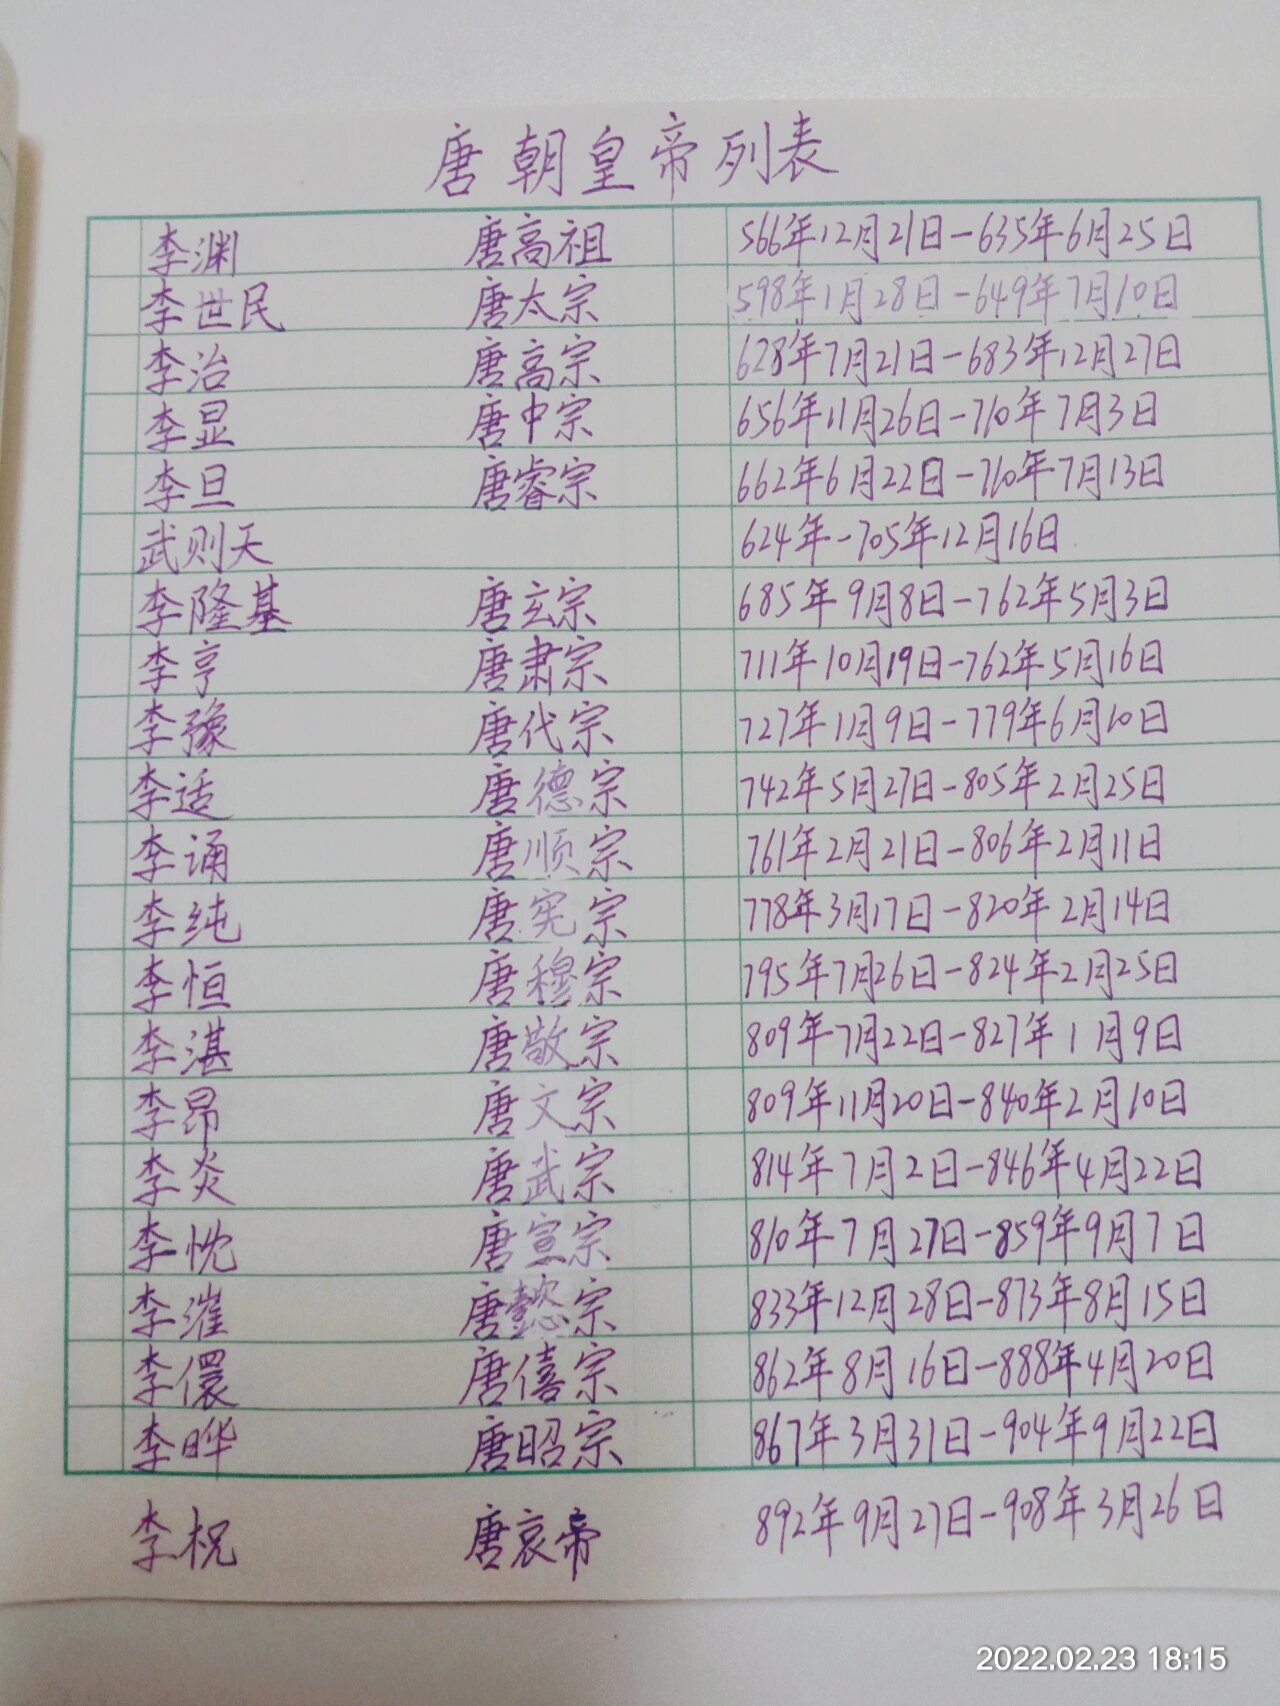 唐朝皇帝列表
李渊 唐高祖 566年12月21日-635年6月25日
李世民 唐太宗 598年1月28日-649年7月10日
李治 唐高宗 628年7月21日-683年12月27日
李显 唐中宗 656年11月26日-710年7月3日
李旦 唐睿宗 662年6月22日-710年7月13日
武则天 624年-705年12月16日
李隆基 唐玄宗 685年9月8日-762年5月3日
李亨 唐肃宗 711年10月19日-762年5月16日
李豫 唐代宗 727年1月9日-779年6月10日
李适 唐德宗 742年5月27日-805年2月25日
李诵 唐顺宗 761年2月21日-806年2月11日
李纯 唐宪宗 778年3月17日-820年2月14日
李恒 唐穆宗 795年7月26日-824年2月25日
李湛 唐敬宗 809年7月22日-827年1月9日
李昂 唐文宗 809年11月20日-840年2月10日
李炎 唐武宗 814年7月2日-846年4月22日
李忱 唐宣宗 810年7月27日-859年9月7日
李漼 唐懿宗 833年12月28日-873年8月15日
李儇 唐僖宗 862年8月16日-888年4月20日
李晔 唐昭宗 867年3月31日-904年9月22日
李柷 唐哀帝 892年9月27日-908年3月26日
2022.02.23 18:15